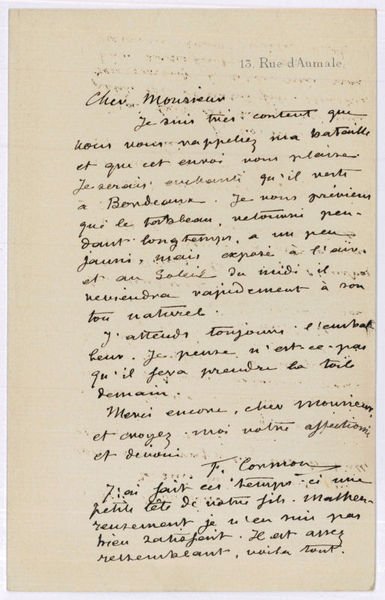 13, Rue d'Aumale.
Cher Monsieur
Je suis très content que
vous vous rappeliez ma bataille
et que cet envoi vous plaise
Je serais enchanté qu'il reste
à Bordeaux. Je vous préviens
que le tableau, retourné pen-
dant longtemps, a un peu
jauni, mais exposé à l'air
et au Soleil du midi il
reviendra rapidement à son
ton naturel.
J'attends toujours l'embal-
leur. Je pense n'est-ce-pas
qu'il fera prendre la toile
demain.
Merci encore, cher monsieur
et croyez moi votre affectionné
et dévoué
F. Cormon
J'ai fait ces temps-ci une
petite tête de votre fils. Malheu-
reusement je n'en suis pas
bien satisfait. Il est assez
ressemblant, voilà tout.